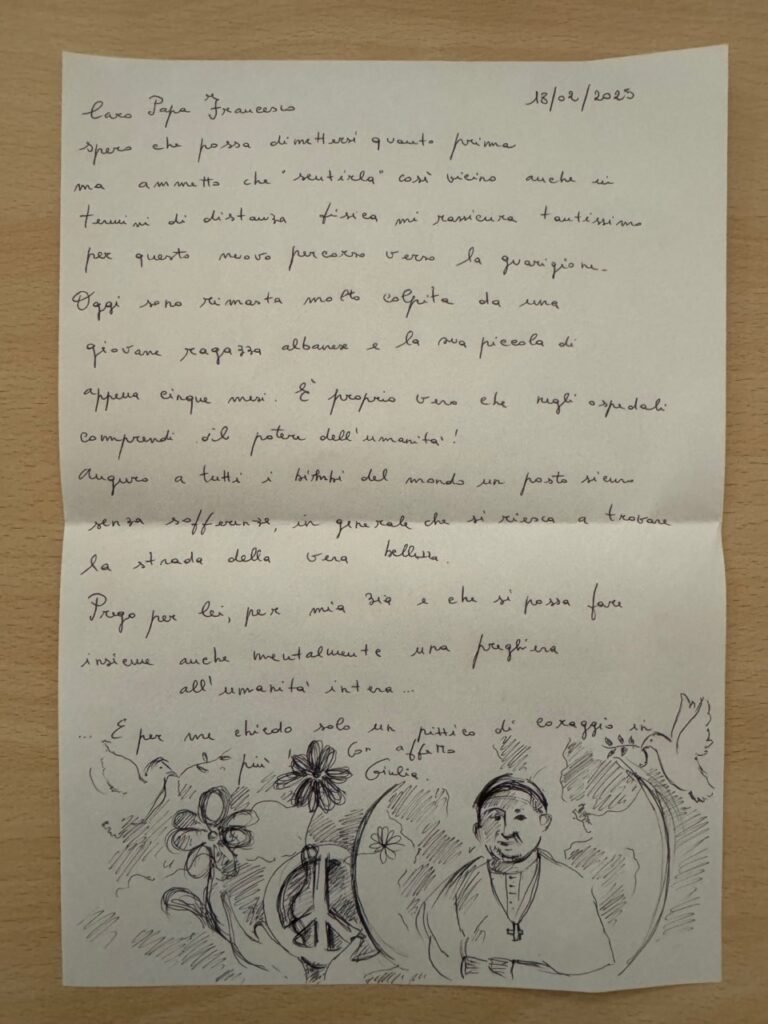 Caro Papa Francesco 18/02/2025
spero che possa dimettersi quanto prima
ma ammetto che "sentirla" così vicino anche in
termini di distanza fisica mi rassicura tantissimo
per questo nuovo percorso verso la guarigione.
Oggi sono rimasta molto colpita da una
giovane ragazza albanese e la sua piccola di
appena cinque mesi. È proprio vero che negli ospedali
comprendi il potere dell'umanità!
Auguro a tutti i bimbi del mondo un posto sicuro
senza sofferenze, in generale che si riesca a trovare
la strada della vera bellezza.
Prego per lei, per mia zia e che si possa fare
insieme anche mentalmente una preghiera
all'umanità intera...
... E per me chiedo solo un pizzico di coraggio in
più! Con affetto
Giulia.